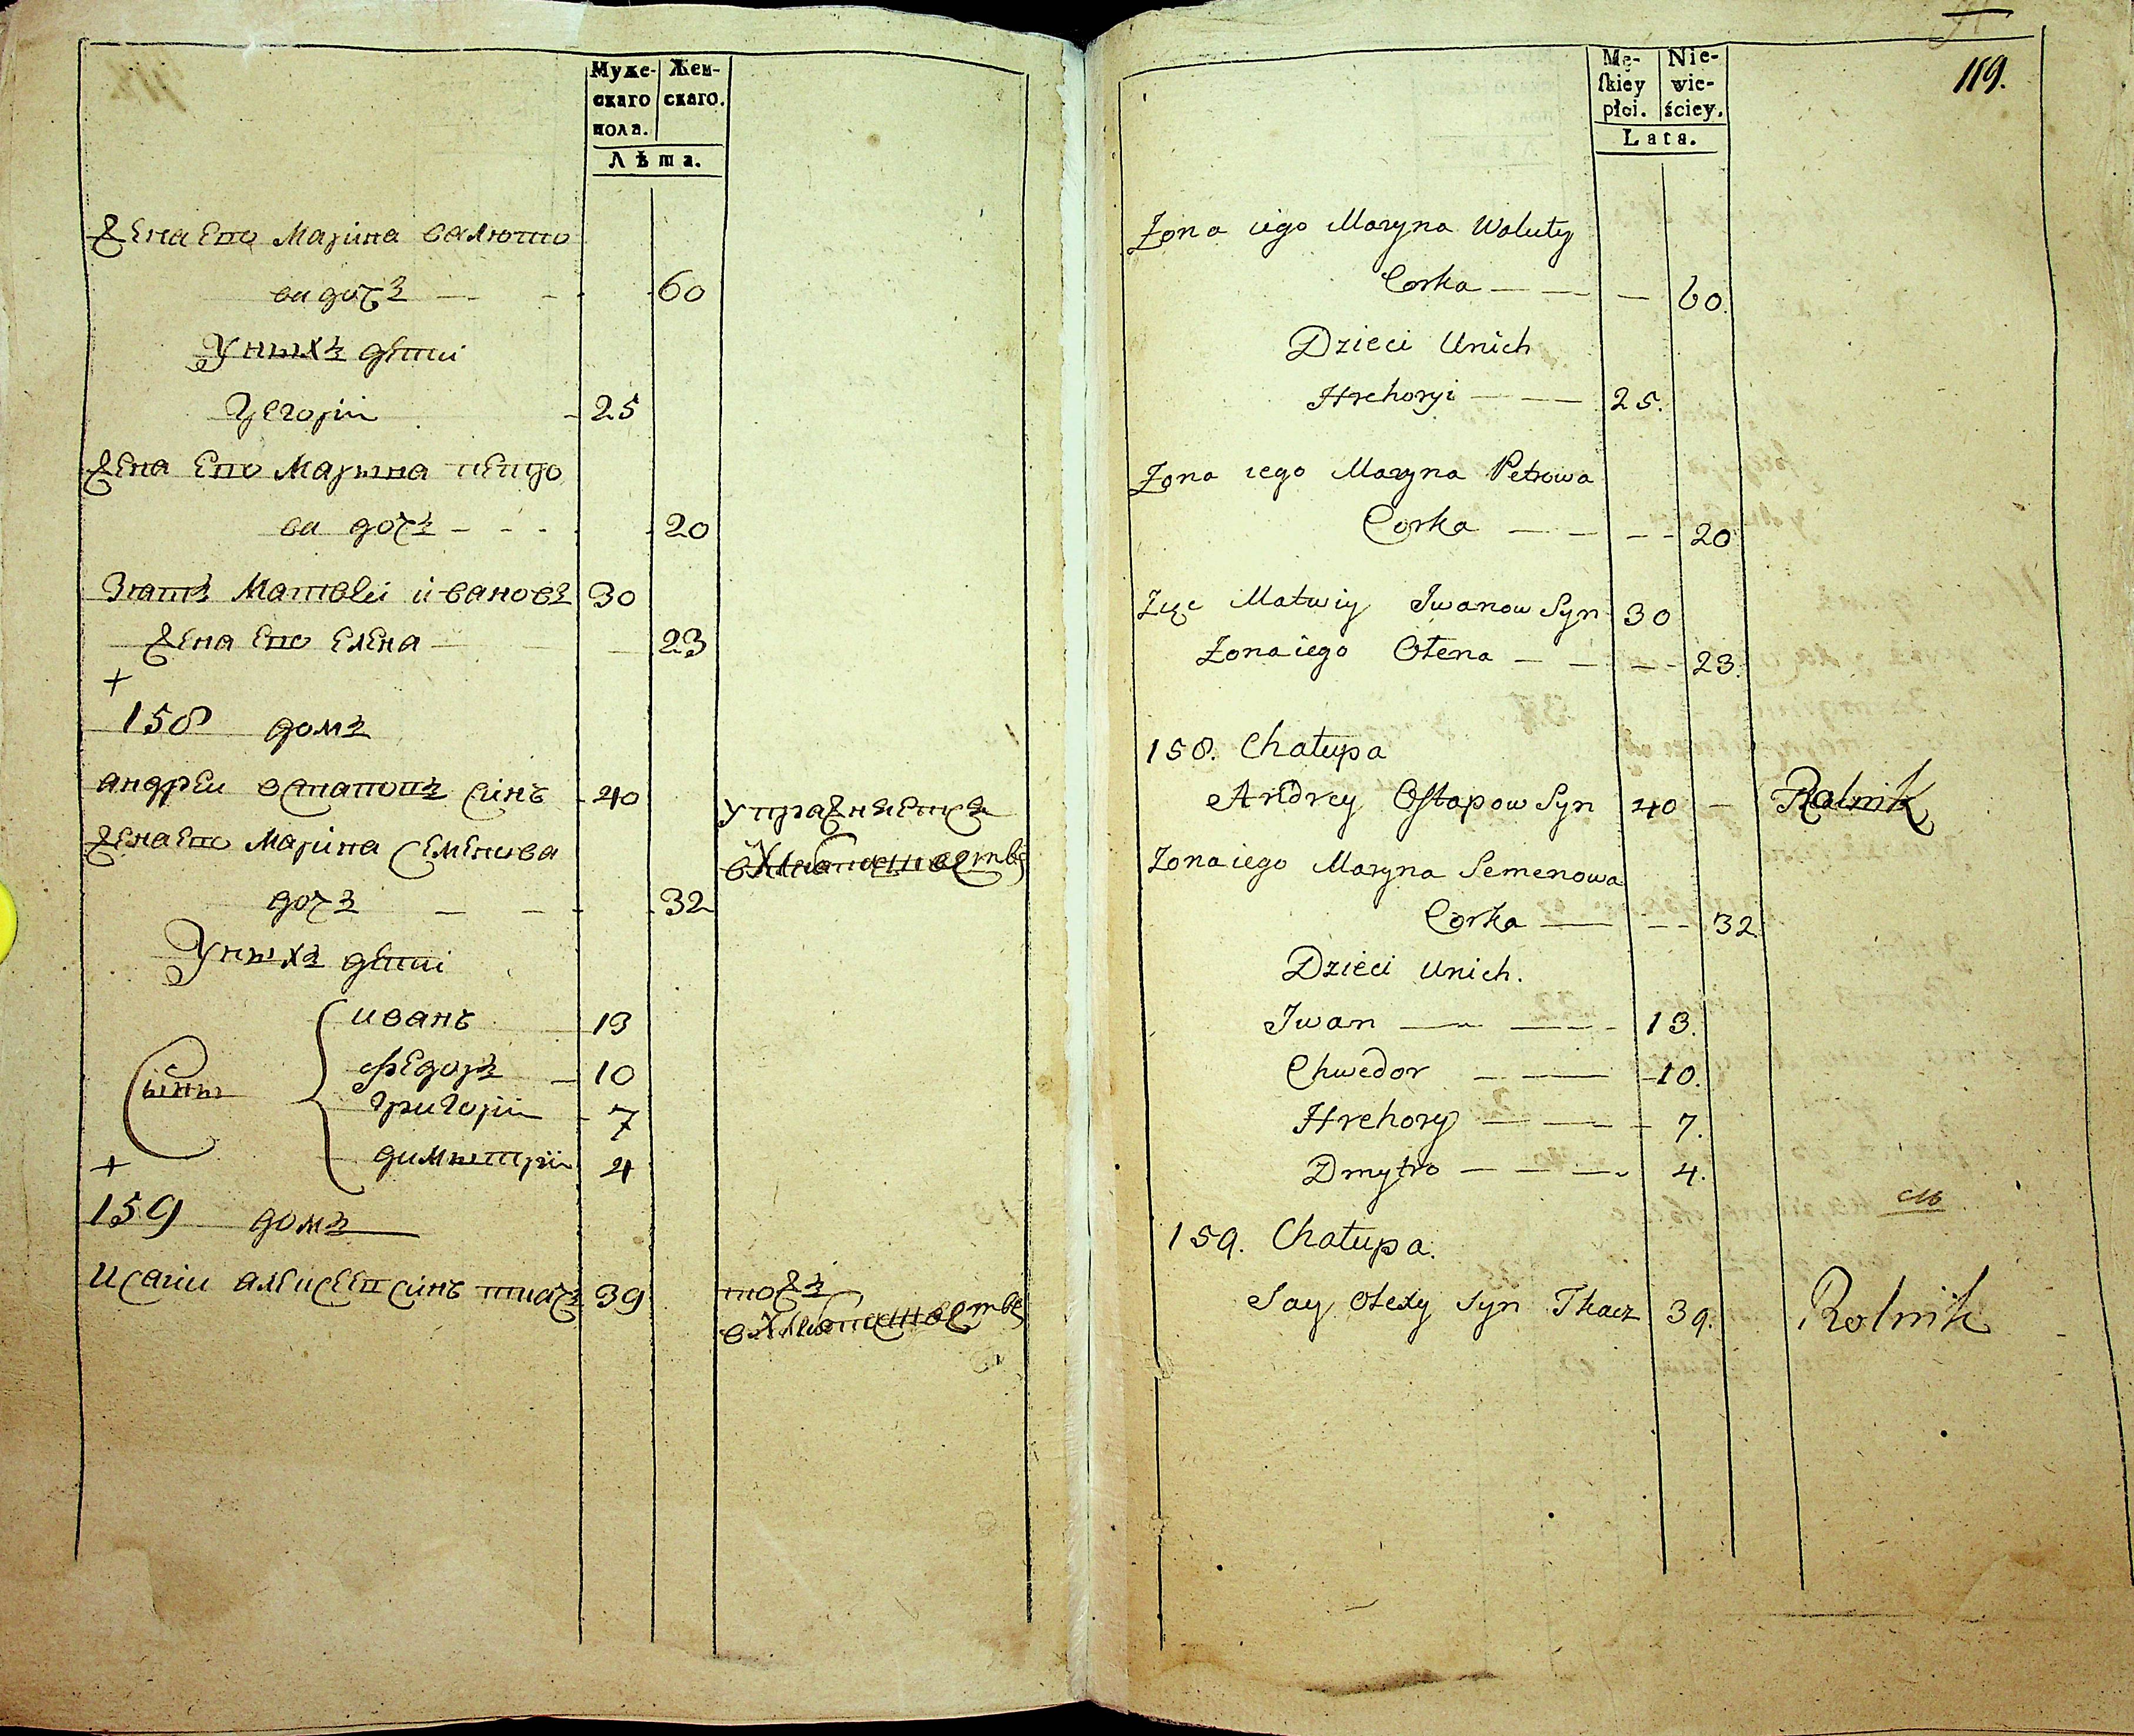 Муже-
скаго
пола.
Жен-
скаго.
Лѣта.
Жена Его Марина валюто
ва дочъ — - - 60
Унихъ дети
Григорiй - 25
Жена Его Марына петро
ва дочъ - - - 20
Зять Матвеи ивановъ 30
Жена Его Елена — 23
+
158 домъ
андреи остаповъ синъ - 40 упражняется
вхлебопашестве
Жена Его Марина Семенова
дочъ — — - 32
Унихъ дети
Сыны
иванъ 13
федоръ — 10
григорiй - 7
димитрiй 4
+
159 домъ
Исаiи алексеевъ синъ ткачъ 39 тожъ
вхлебопашестве
119.
Mę-
ſkiey
płci.
Nie-
wie-
ściey.
Lata.
Żona iego Maryna Waluty
Corka — — — 60.
Dzieci Unich
Hrehoryi — — 25.
Żona iego Maryna Petrowa
Corka — — - - 20
Zięc Matwiy Iwanow Syn 30
Żona iego Ołena — — - - 23.
158. Chałupa
Andrey Oſtapow Syn 40 — Rolnik
Żona iego Maryna Semenowa
Corka — - - 32
Dzieci Unich.
Iwan — — - - 13.
Chwedor — — - 10.
Hrehory — — - 7.
Dmytro — — — 4.
159. Chałupa.
Say Olexy Syn Tkacz 39. Rolnik